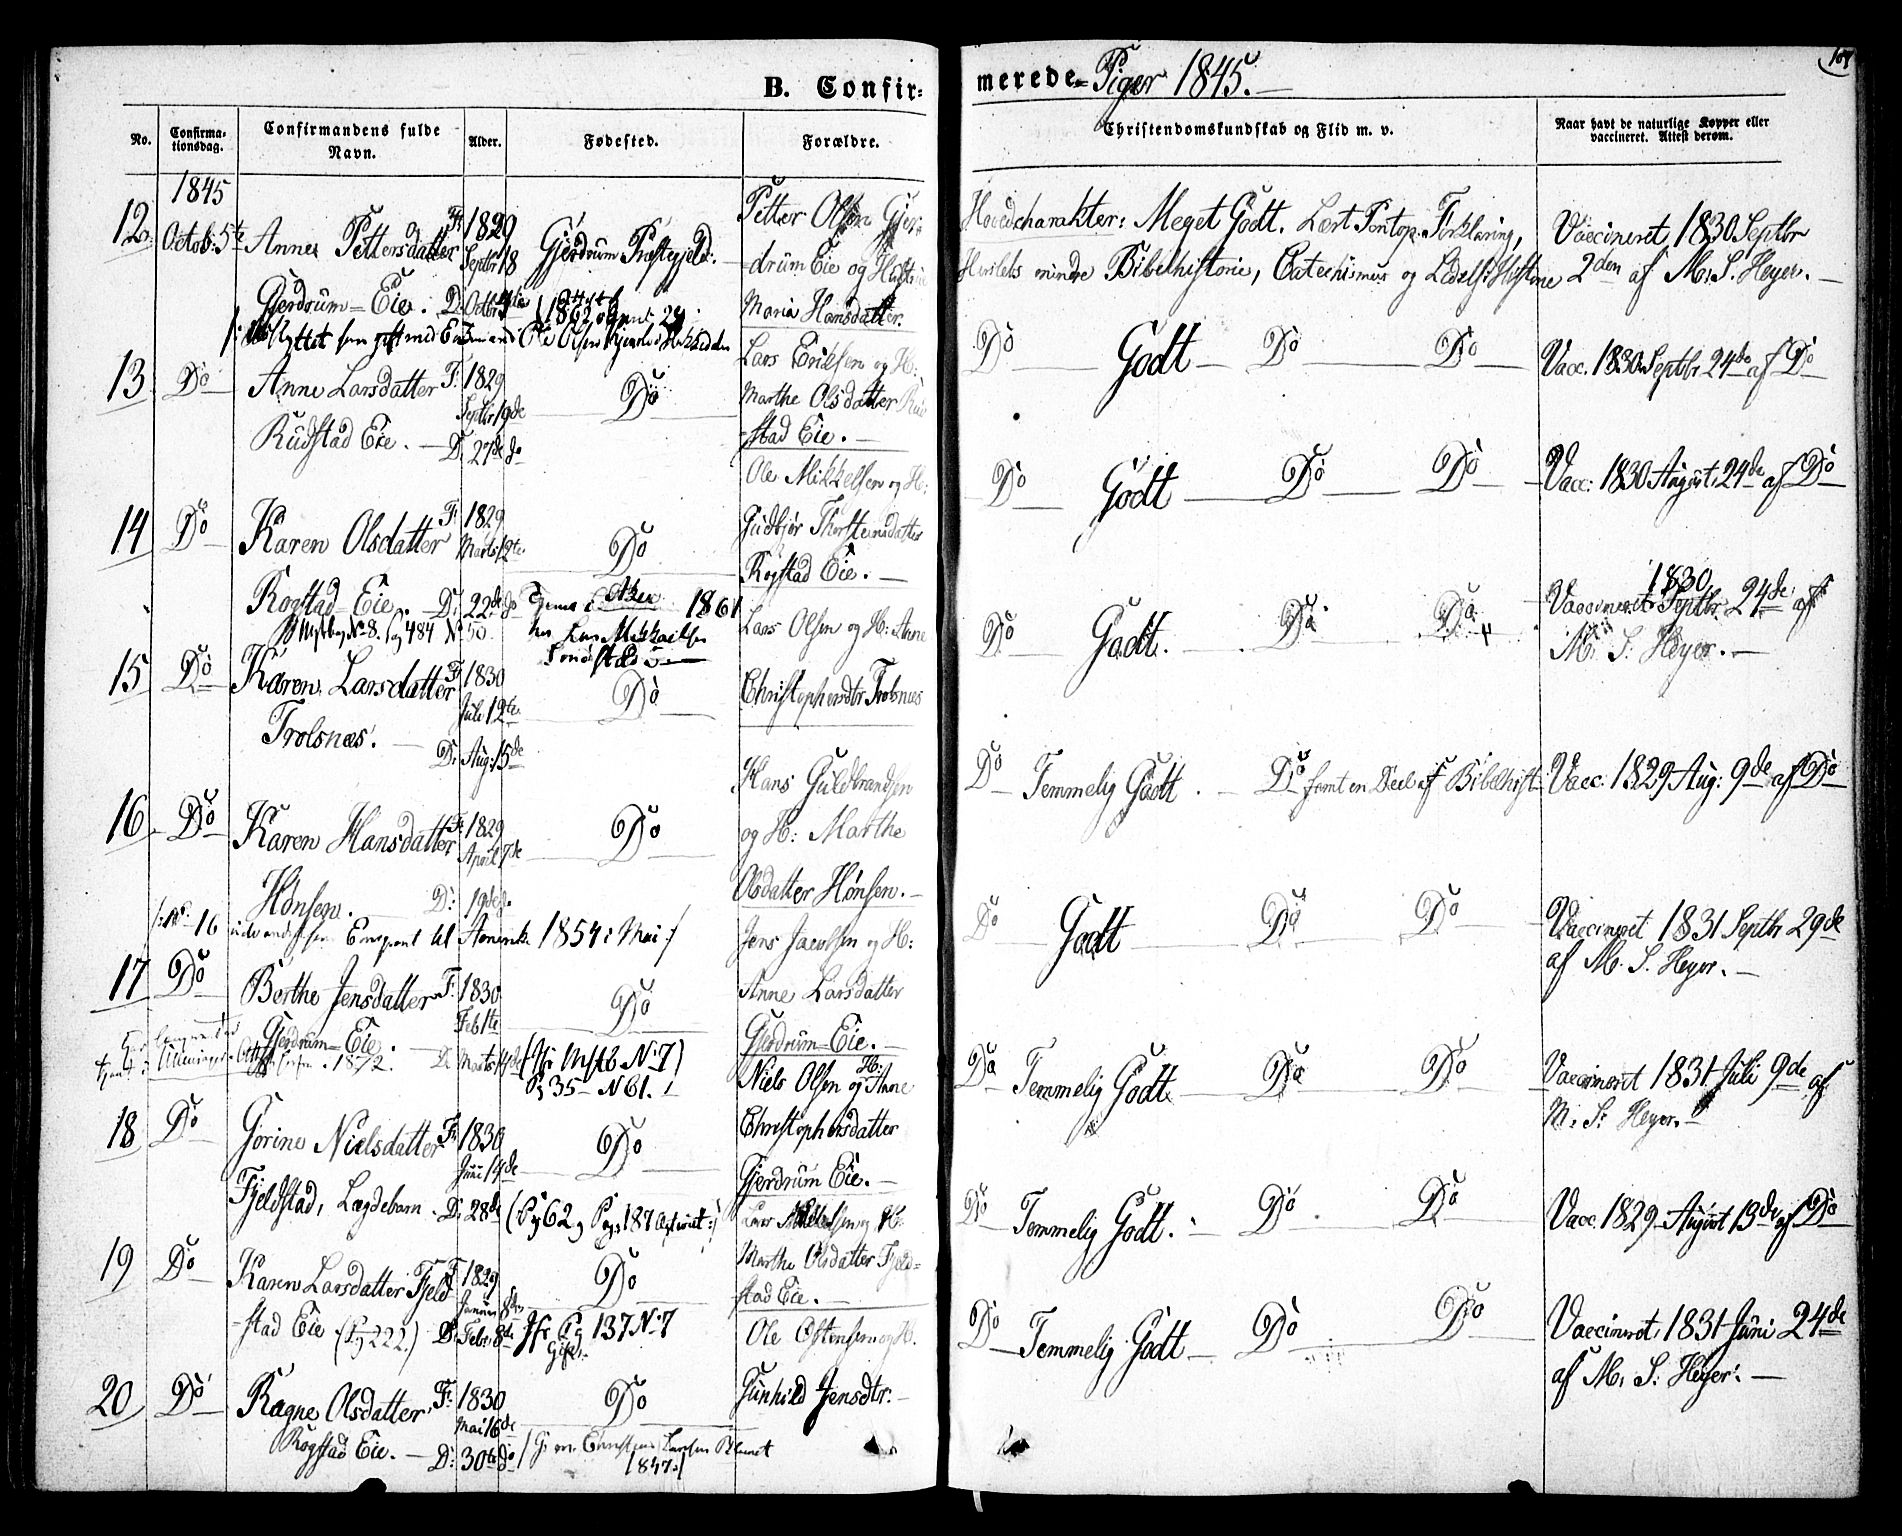 B. Confir=
merede= Piger 1845.
No.
Confirma-
tionsdag.
Confirmandens fulde
Navn.
Alder.
Fødested.
Forældre.
Christendomskundskab og Flid m. v.
Naar havt de naturlige Kopper eller
vaccineret. Attest derom.
1845
12. Octob: 5te Anne Pettersdatter F: 1829 Septbr 18 Gjerdrum Præstegjeld.
Gjerdrum=Eie. D. Octbr
Petter Olsen Gjer=
drum Eie og Hustrue
Maria Hansdatter.
Hovedcharakter: Meget Godt. Lært Pontop: Forklaring,
mindre Bibelhistorie, Catechismus og Lidelses Historie
Vaccineret, 1830 Septbr
2den af M. S. Heyer. —
13 Do Anne Larsdatter F: 1829 Do
Septbr 19de
Rudstad Eie. — D. 27de do
Lars Eriksen og H:
Marthe Olsdatter Rud
stad Eie. —
Do Godt — Do Do
Vacc. 1830 Septbr 24de af Do
14 Do Karen Olsdatter F: 1829 Do
Marts 12te
Rogstad=Eie. D: 22de do
No 8. Pag 484 No 50.
Tjener i Aker 1861
hos
Ole Mikkelsen og H:
Gudbjør Thorstensdatter
Rogstad Eie. —
Do Godt — Do Do
Vacc: 1830 August 24de af Do
15 Do Karen Larsdatter F: 1830 Do
Juli 12te
Trolsnæs. — D: Aug: 15de
Lars Olsen og H: Anne
Christophersdtr Trolsnæs
Do Godt. — Do Do
1830
Vaccineret Septbr 24de af
M. S. Heyer. —
16 Do Karen Hansdatter F: 1829 Do
April 7de
Hønsen. D: 19de do
No 16 Emigrant til Amerik. 1854 i Mai :/
Hans Guldbrandsen
og H: Marthe
Olsdatter Hønsen. —
Do Temmelig Godt. — Do samt en Deel af Bibelhist.
Vacc. 1829 Aug: 9de af Do
17 Do Berthe Jensdatter F: 1830 Do
Feb 1te
Gjerdrum=Eie. D. Marts 14de
1872.
No 7)
Pg 35 — N 61.
Jens Jacobsen og H:
Anne Larsdatter
Gjerdrum=Eie. —
Do Godt — Do Do
Vaccineret 1831 Septbr 29de
af M. S. Heyer. —
18 Do Gorine Nielsdatter F: 1830 Do
Juni 14de
Fjeldstad, Lægdebarn. D. 28de
Niels Olsen og H: Anne
Christophersdatter
Gjerdrum Eie. —
Do Temmelig Godt. — Do Do
Vaccineret 1831 Juli 9de af
M. S: Heyer. —
19 Do Karen Larsdatter Fjeld F: 1829 Do
Januar 8de
=stad Eie (Pg 222.) D. Febr: 8de
Jfr Pg 137 No 7
Gift
Lars og H:
Marthe Olsdatter Fjeld=
stad Eie. —
Do Temmelig Godt. — Do Do
Vacc. 1829 August 13de af Do
20 Do Ragne Olsdatter F: 1830 Do
Mai 16de
Rogstad Eie. — D: 30te do
1847
Ole Ostensen og H.
Gunhild Jensdtr. —
Do Temmelig Godt — Do Do
Vaccineret, 1831 Juni 24de
af M. S: Heyer. —